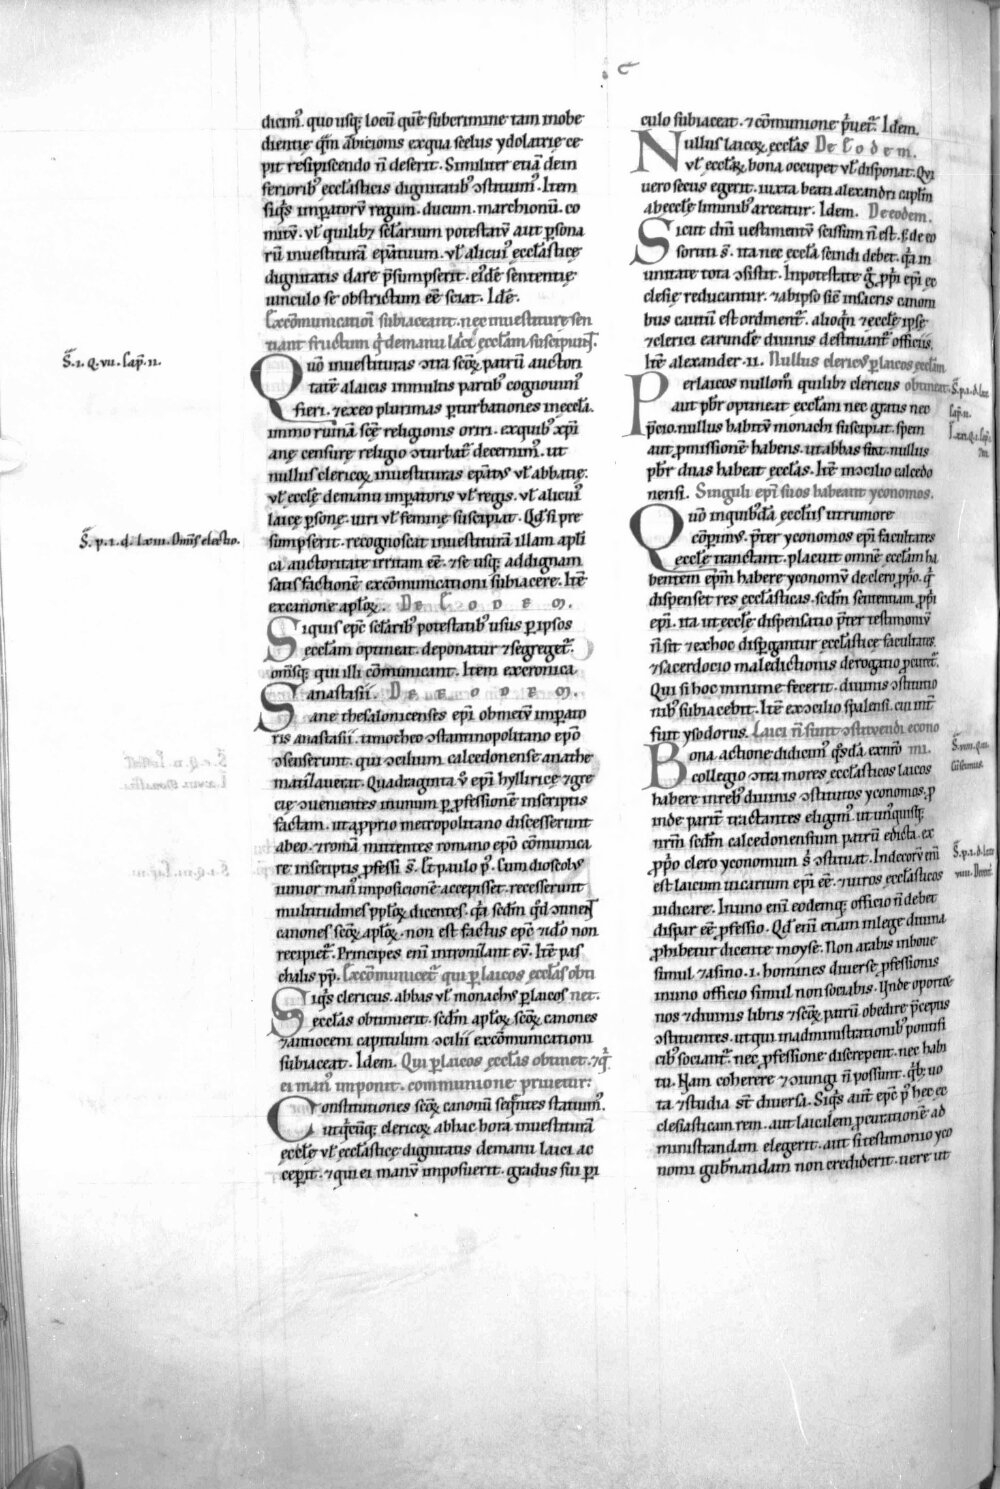 dicim᷒. quo usq; locū quē sub crimine tam inobe
dientie q̄m ābicionis ex qua scelus ydolatrie ce
pit resipiscendo n̄ deserit. Similiter etiā de in
ferioribꝰ eccl̄asticis dignitatibꝰ ↄstituimꝰ. Item
siq̄s imp̄atorū regum. ducum. marchionū. co
mitū. vl̄ quilibꝫ sc̄larium potestatū aut ꝑsona
rū inuestiturā ep̄atuum. vl̄ alicuiꝰ eccl̄astice
dignitatis dare p̄sumpserit. eidē sententie
uinculo se obstrictum eē sciat. Idē.
Excōmunicationi subiaceant. nec inuestiture sen
tiant fructum q̄ de manu laici eccl̄am suscipiunt.
S̄. 1. Q. vii. Cap̄. 11.
Quō inuestituras ↄtra scōꝝ patrū auctori
tatē a laicis in multis partibꝰ cognouimꝰ
fieri. ⁊ ex eo plurimas ꝑturbationes in eccl̄a.
immo ruinā scē religionis oriri. ex quibꝰ xp̄i
ane censure religio ↄturbat᷑ decernimꝰ. ut
nullus clericoꝝ inuestituras ep̄atꝰ vl̄ abbatie.
vl̄ eccl̄e de manu imp̄atoris vl̄ regis. vl̄ alicuiꝰ
laice ꝑsone. uiri vl̄ femine suscipiat. Qd̄ si pre
S̄. p. 1. d. lxiii. Om̄is electio.
sumpserit. recognoscat inuestiturā illam apl̄i
ca auctoritate irritam eē. ⁊ se usq; ad dignam
satisfactionē excōmunicationi subiacere. Itē
ex canone apl̄oꝝ. De Eodem.
Siquis ep̄c sc̄laribꝰ potestatibꝰ usus ꝑ ipsos
eccl̄am optineat. deponatur ⁊ segreget᷑.
om̄isq; qui illi cōmunicant. Item ex cronica
anastasii. De eodem.
Sane thesalonicenses ep̄i ob metū imp̄ato
ris anastasii. timotheo ↄstantinopolitano ep̄o
ↄsenserunt. qui ↄcilium calcedonense anathe
matizauerat. Quadraginta v̄ ep̄i hyllirice ⁊ gre
cie ↄuenientes in unum ꝑ ꝓfessionē in scriptis
factam. ut a ꝓprio metropolitano discesserunt
ab eo. ⁊ romā mittentes romano ep̄o cōmunica
re in scriptis ꝓfessi s̄. Et paulo pꝰ. Cum dioscorꝰ
iunior manꝰ imposicionē accepisset. recesserunt
multitudines ppl̄oꝝ dicentes. q̄a sc̄dm qd̄ ↄtinent
canones scōꝝ apl̄oꝝ. non est factus ep̄c ⁊ idō non
recipiet᷑. Principes eni intronizant eū. Itē pas
chalis pp̄. Excōmunicet᷑ qui ꝑ laicos eccl̄as obti
Siq̄s clericus. abbas vl̄ monachꝰ ꝑ laicos net.
eccl̄as obtinuerit. sc̄dm apl̄oꝝ scōꝝ canones
⁊ antioceni capitulum ↄcilii excōmunicationi
subiaceat. Idem. Qui ꝑ laicos eccl̄as obtinet. ⁊ q̄
ei manꝰ imponit. communione priuetur.
Constitutiones scōꝝ canonū seq̄ntes statuimꝰ.
ut q̄cūq; clericoꝝ ab hac hora inuestiturā
eccl̄e vl̄ eccl̄astice dignitatis de manu laici ac
ceperit. ⁊ qui ei manū imposuerit. gradus sui pi
culo subiaceat. ⁊ cōmunione p̄uet᷑. Idem.
Nullus laicoꝝ eccl̄as De Eodem.
vl̄ eccl̄aꝝ bona occupet vl̄ disponat. Qui
uero secus egerit. iuxta beati alexandri capl̄m
ab eccl̄e liminibꝰ arceatur. Idem. De eodem.
Sicut dn̄i uestimentū scissum n̄ est. s; de eo
sortiti s̄. ita nec eccl̄a scindi debet. q̄a in
unitate tota ↄsistit. In potestate g̊ ꝓprii ep̄i ec
clesie reducantur. ⁊ ab ipso sic̄ in sacris canoni
bus cautū est ordinent᷑. alioq̄n ⁊ eccl̄e ipse
⁊ clerici earundē diuinis destituant᷑ officiis.
Itē alexander. ii. Nullus clericꝰ ꝑ laicos eccl̄am
Per laicos nullom̄ quilibꝫ clericus obtineat.
aut pb̄r optineat eccl̄am nec gratis nec
p̄cio. nullus habitū monachi suscipiat. spem
aut ꝓmissionē habens. ut abbas fiat. nullus
pb̄r duas habeat eccl̄as. Itē in ↄcilio calcedo
nensi. Singuli ep̄i suos habeant yconomos.
Quō in quibꝰdā eccl̄iis ut rumore
cōꝑimꝰ. p̄ter yconomos ep̄i facultates
eccl̄e tractant. placuit omnē eccl̄am ha
bentem ep̄m habere yconomū de clero ꝓprio. q̄
dispenset res eccl̄asticas. sc̄dm sententiam ꝓprii
ep̄i. ita ut eccl̄e dispensatio p̄ter testimoniū
n̄ sit ⁊ ex hoc dispgantur eccl̄astice facultates.
⁊ sacerdocio maledictionis derogatio ꝓcuret᷑.
Qui si hoc minime fecerit. diuinis ↄstitutio
nibꝰ subiacebit. Itē ex ↄcilio spalensi. cui int̄
fuit ysodorus. Laici n̄ sunt ↄstituendi econo
Bona actione didicimꝰ q̄sdā ex nr̄o mi.
collegio ↄtra mores eccl̄asticos laicos
habere in rebꝰ diuinis ↄstitutos yconomos. ꝓ
inde parit᷑ tractantes eligimꝰ. ut unꝰquisq;
nr̄m sc̄dm calcedonensium patrū edicta. ex
ꝓprio clero yconomum s̄ ↄstituat. Indecorū eni
est laicum uicarium ep̄i eē. ⁊ uiros eccl̄asticos
iudicare. In uno eni eodemq; officio n̄ debet
dispar eē ꝓfessio. Qd̄ eni etiam in lege diuina
ꝓhibetur dicente moyse. Non arabis in boue
simul ⁊ asino. i. homines diuerse ꝓfessionis
in uno officio simul non sociabis. Unde oportet
nos ⁊ diuinis libris ⁊ scōꝝ patrū obedire p̄ceptis
ↄstituentes. ut qui in administrationibꝰ pontifi
cibꝰ sociant᷑. nec ꝓfessione discrepent. nec habi
tu. Nam coherere ⁊ ↄiungi n̄ possunt. q̄bꝫ uo
ta ⁊ studia st̄ diuersa. Siq̄s aut ep̄c pꝰ hec ec
clesiasticam rem. aut laicalem ꝓcurationē ad
ministrandam elegerit. aut si testimonio yco
nomi gub̄nandam non crediderit. uere ut